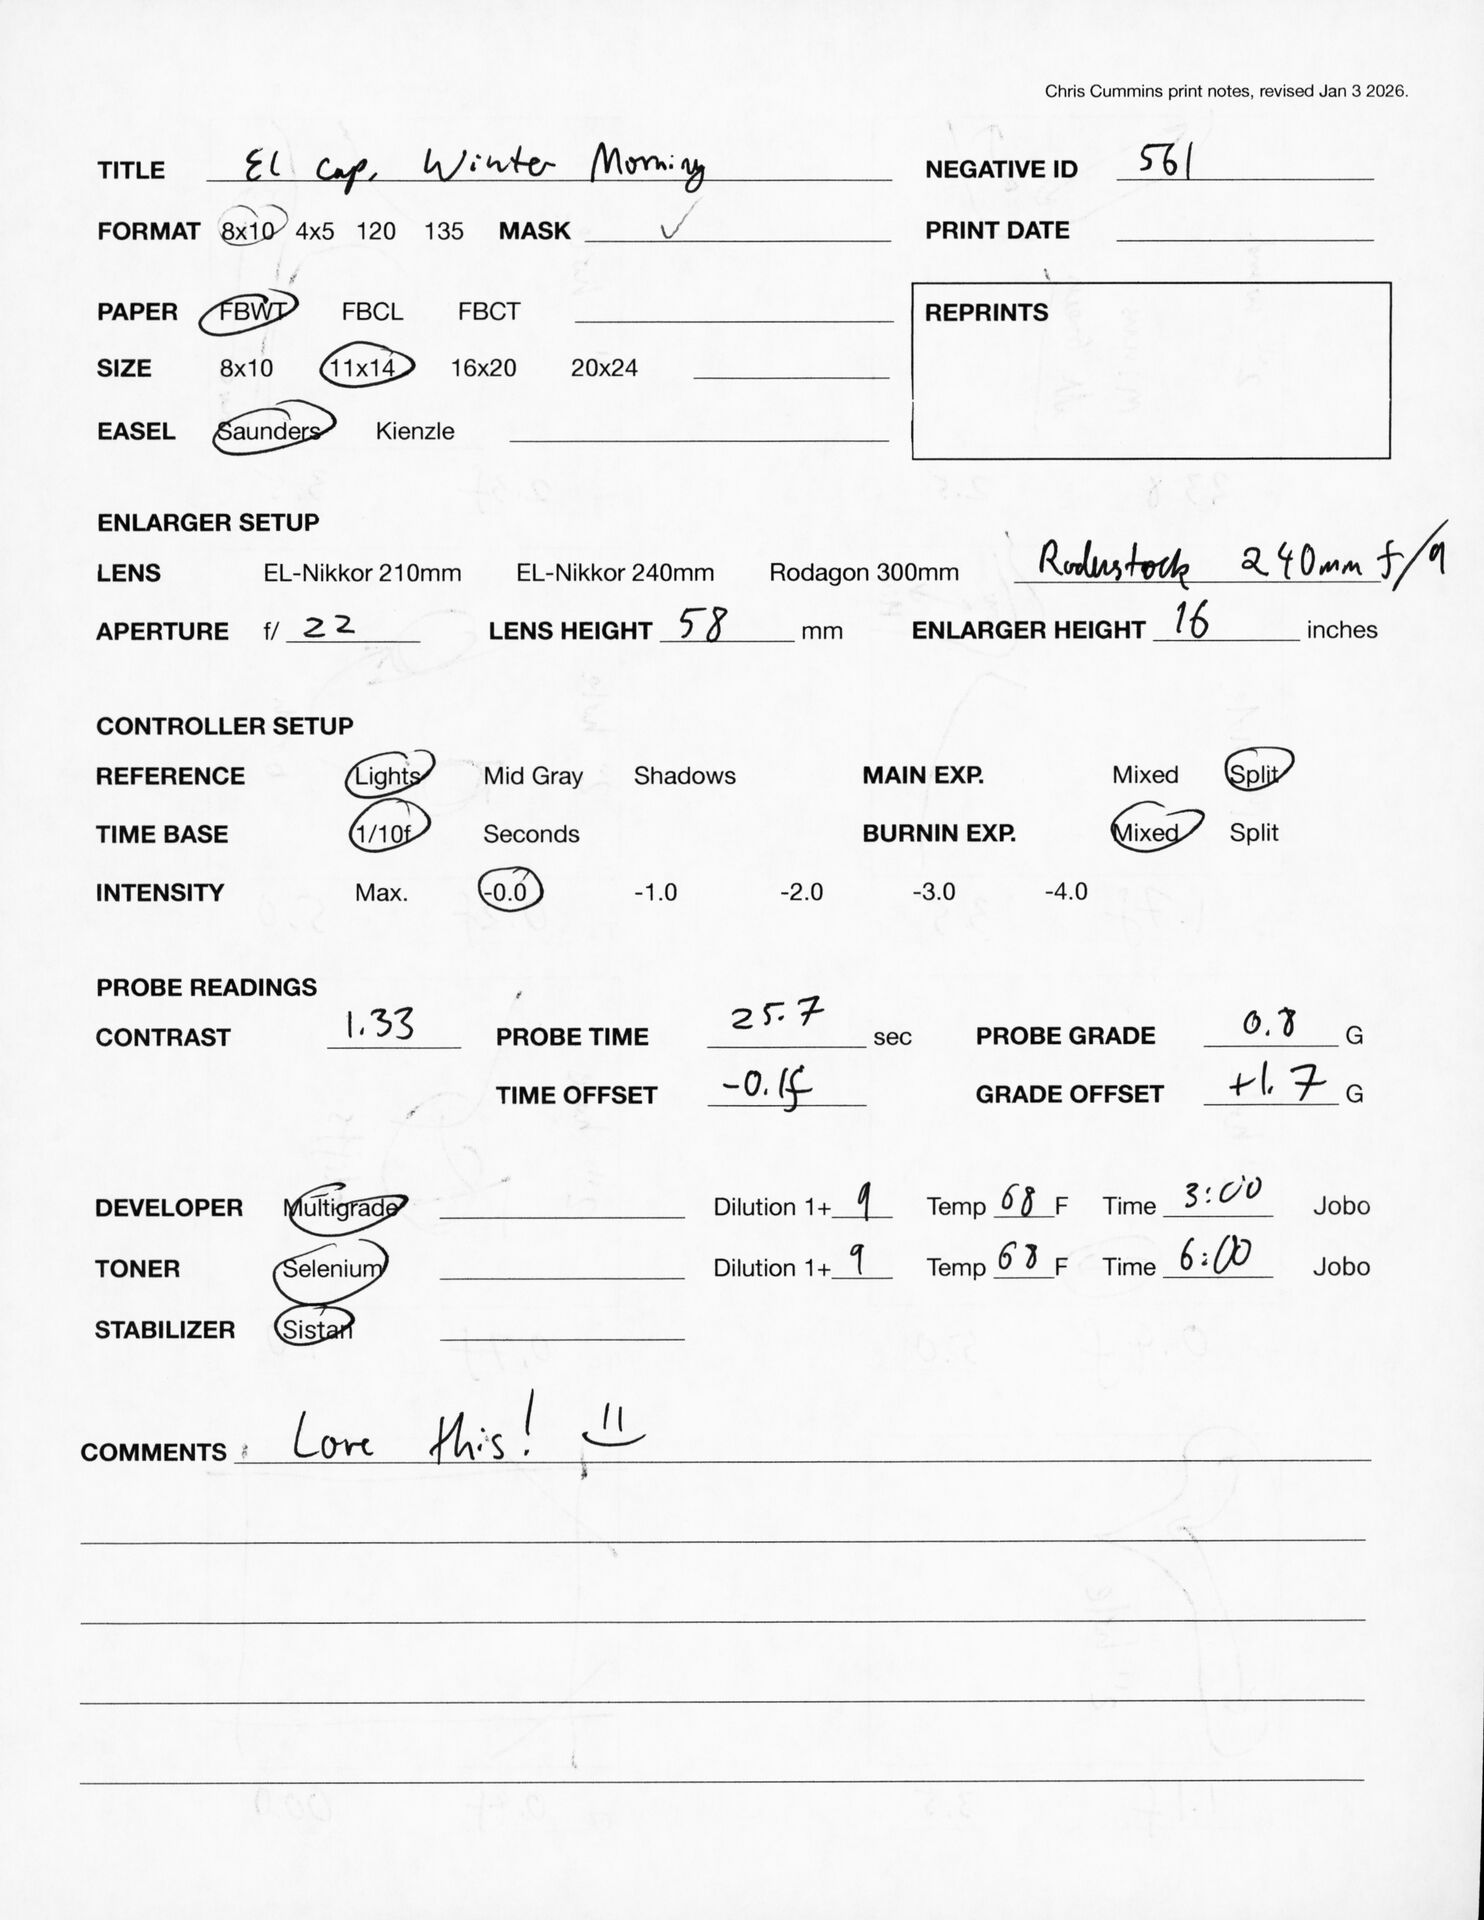 Chris Cummins print notes, revised Jan 3 2026.
TITLE El Cap, Winter Morning NEGATIVE ID 561
FORMAT 8x10 4x5 120 135 MASK ✓ PRINT DATE
PAPER FBWT FBCL FBCT REPRINTS
SIZE 8x10 11x14 16x20 20x24
EASEL Saunders Kienzle
ENLARGER SETUP
LENS EL-Nikkor 210mm EL-Nikkor 240mm Rodagon 300mm Rodenstock 240mm f/9
APERTURE f/ 22 LENS HEIGHT 58 mm ENLARGER HEIGHT 16 inches
CONTROLLER SETUP
REFERENCE Lights Mid Gray Shadows MAIN EXP. Mixed Split
TIME BASE 1/10f Seconds BURNIN EXP. Mixed Split
INTENSITY Max. -0.0 -1.0 -2.0 -3.0 -4.0
PROBE READINGS
CONTRAST 1.33 PROBE TIME 25.7 sec PROBE GRADE 0.8 G
TIME OFFSET -0.1f GRADE OFFSET +1.7 G
DEVELOPER Multigrade Dilution 1+ 9 Temp 68 F Time 3:00 Jobo
TONER Selenium Dilution 1+ 9 Temp 68 F Time 6:00 Jobo
STABILIZER Sistan
COMMENTS : Love this!